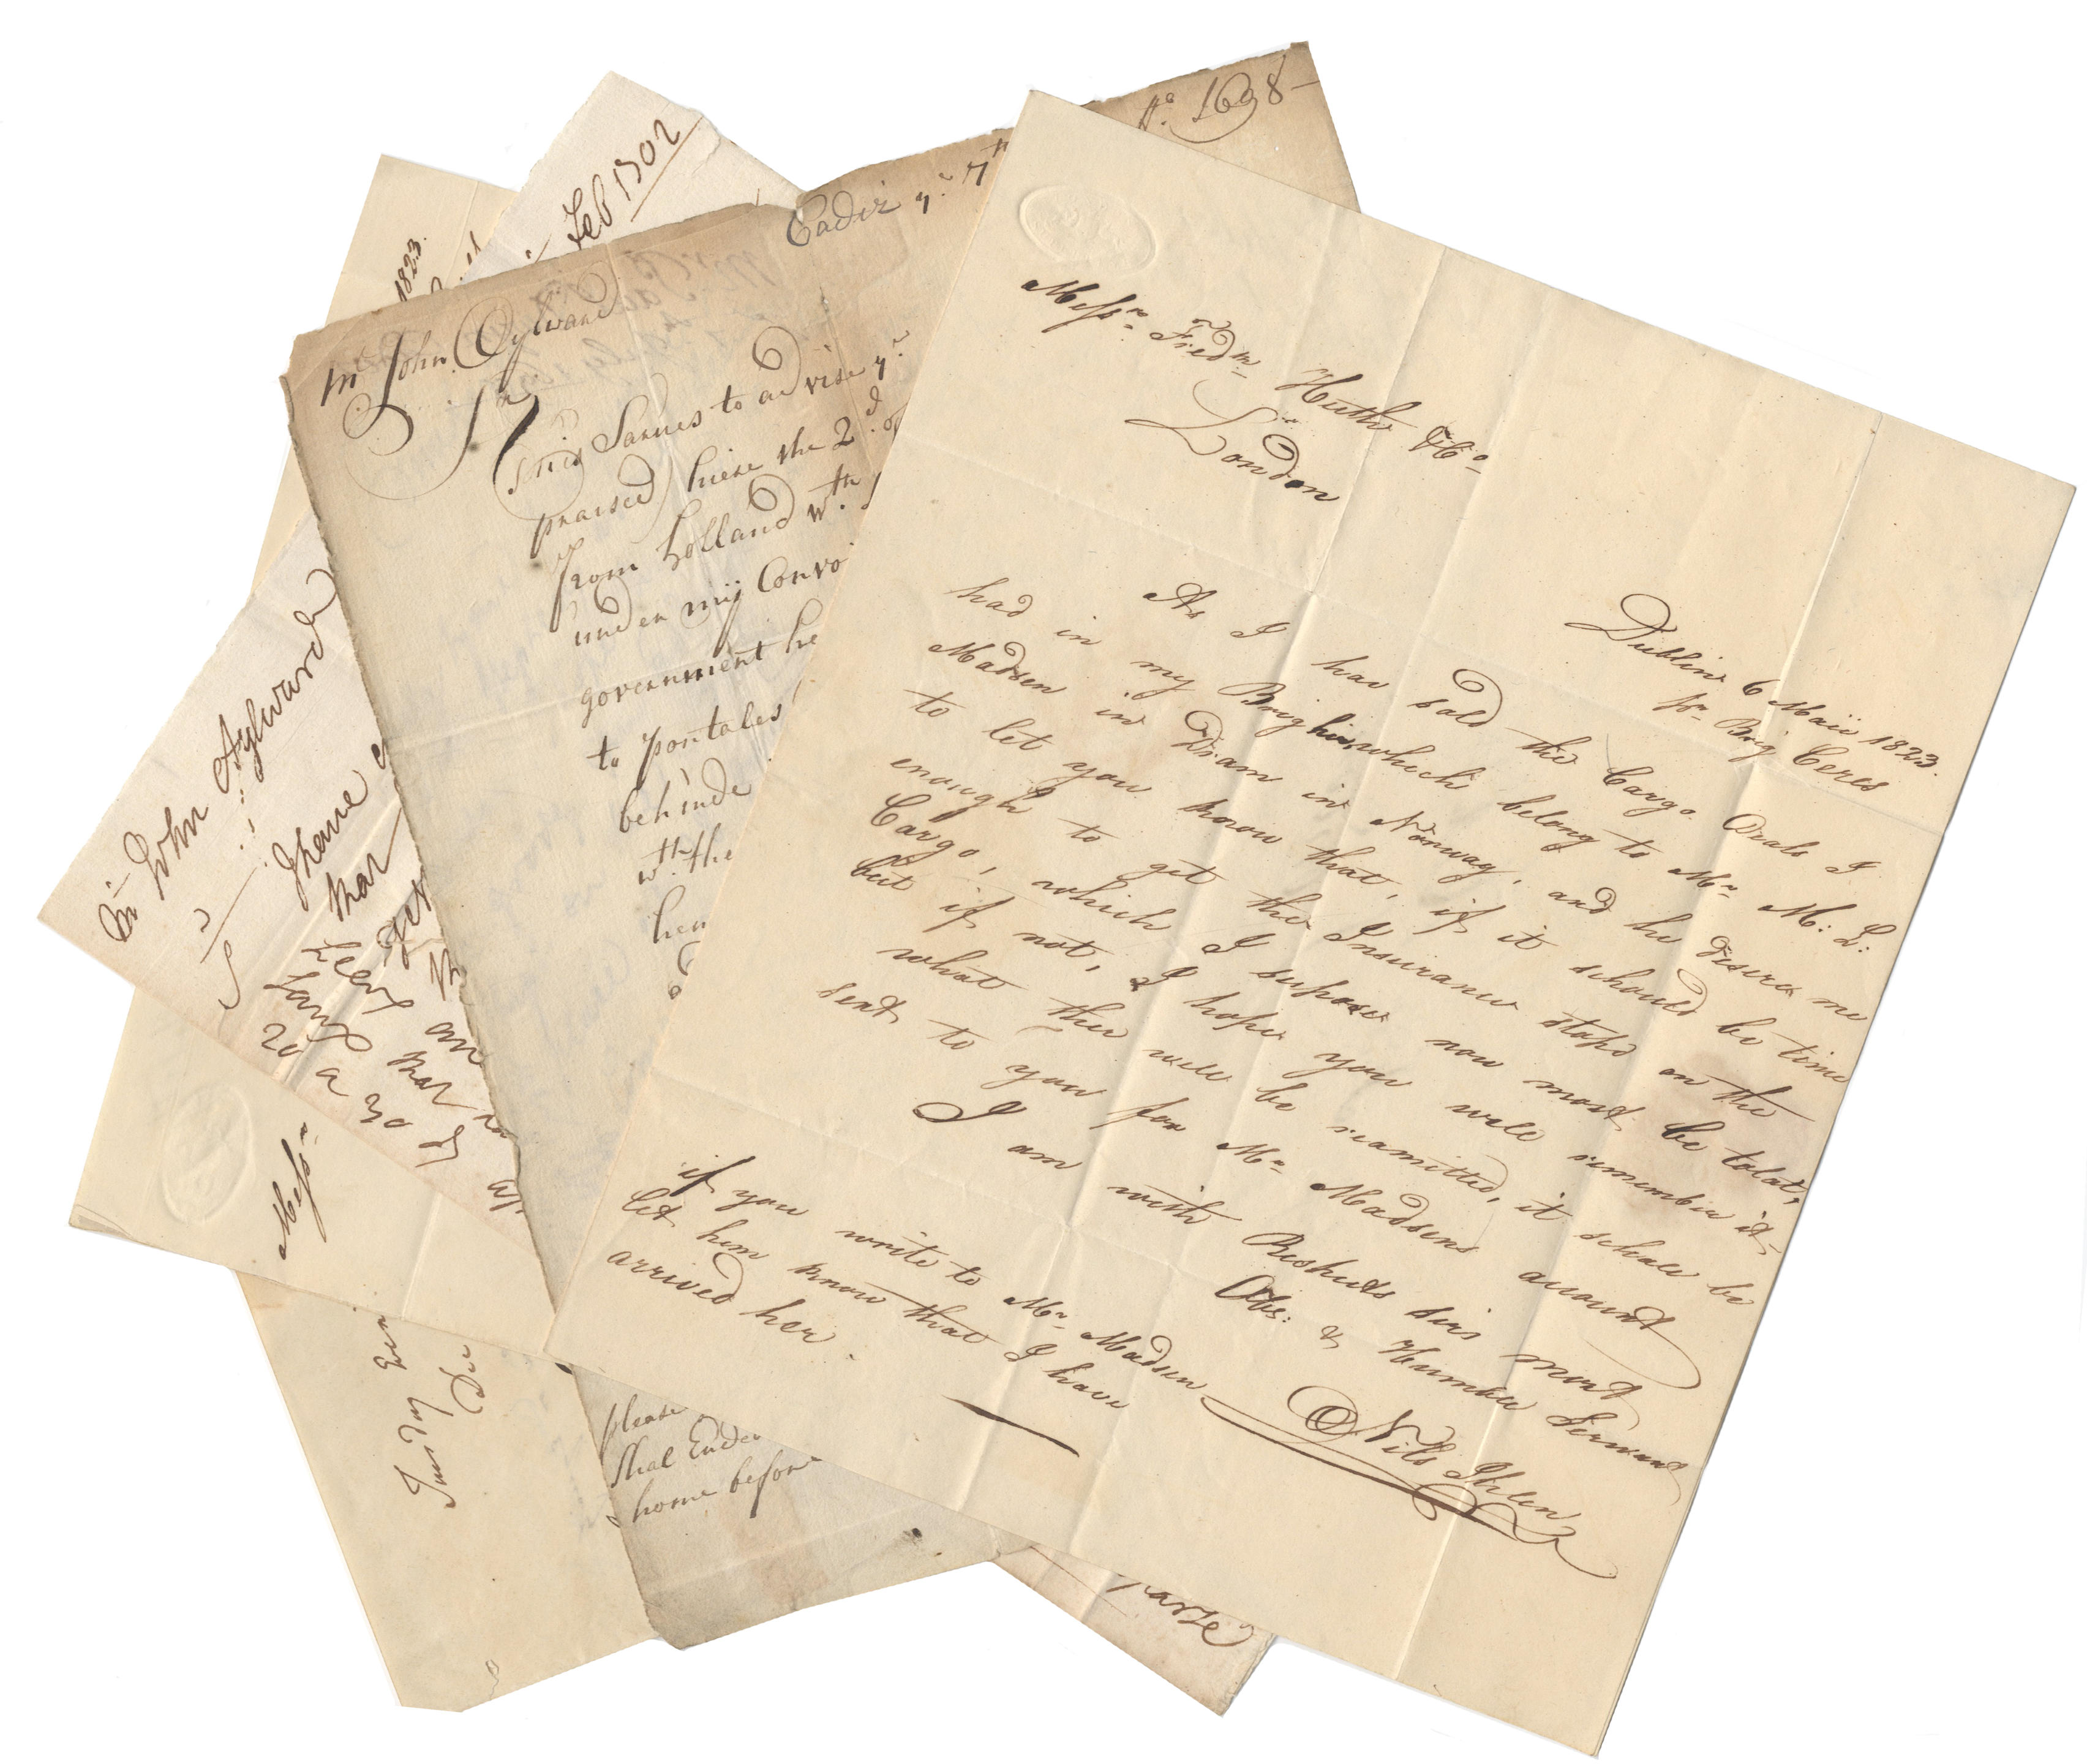 Messrs. Fredk. Huth & Co
London
Dublin 6 Maii 1823.
pr. Brig Ceres
As I have sold the Cargo Deals I
had in my Brig his, which belong to Mr. M: L:
Madsen in Dram in Norway, and he desires me
to let you know that, if it schould be time
enough to get the Insurance stopd on the
Cargo, which I suposes now most be tolat,
but if not, I hope you will remember it,
what ther will be reamitted, it schall be
sent to you for Mr. Madsens account
I am with Respects sirs most
Obs: & Humble Servant
Niels Ihlen
if you write to Mr. Madsen
let him know that I have
arrived her.
Cadiz ye. 7th
Ao. 1698
Mr John Aylward
Sr
this Sarues to advise ye.
praised hiere the 2d. of
from holland wth.
under mij Convo
government he
to pontales
behinde
wth. the
hen
please
Shal Endev
home before
Feb 1702
Mr. John Aylward
Sr
I have
that
get
an
that
20 a 30
1823.
Messrs
Tuesday
parte